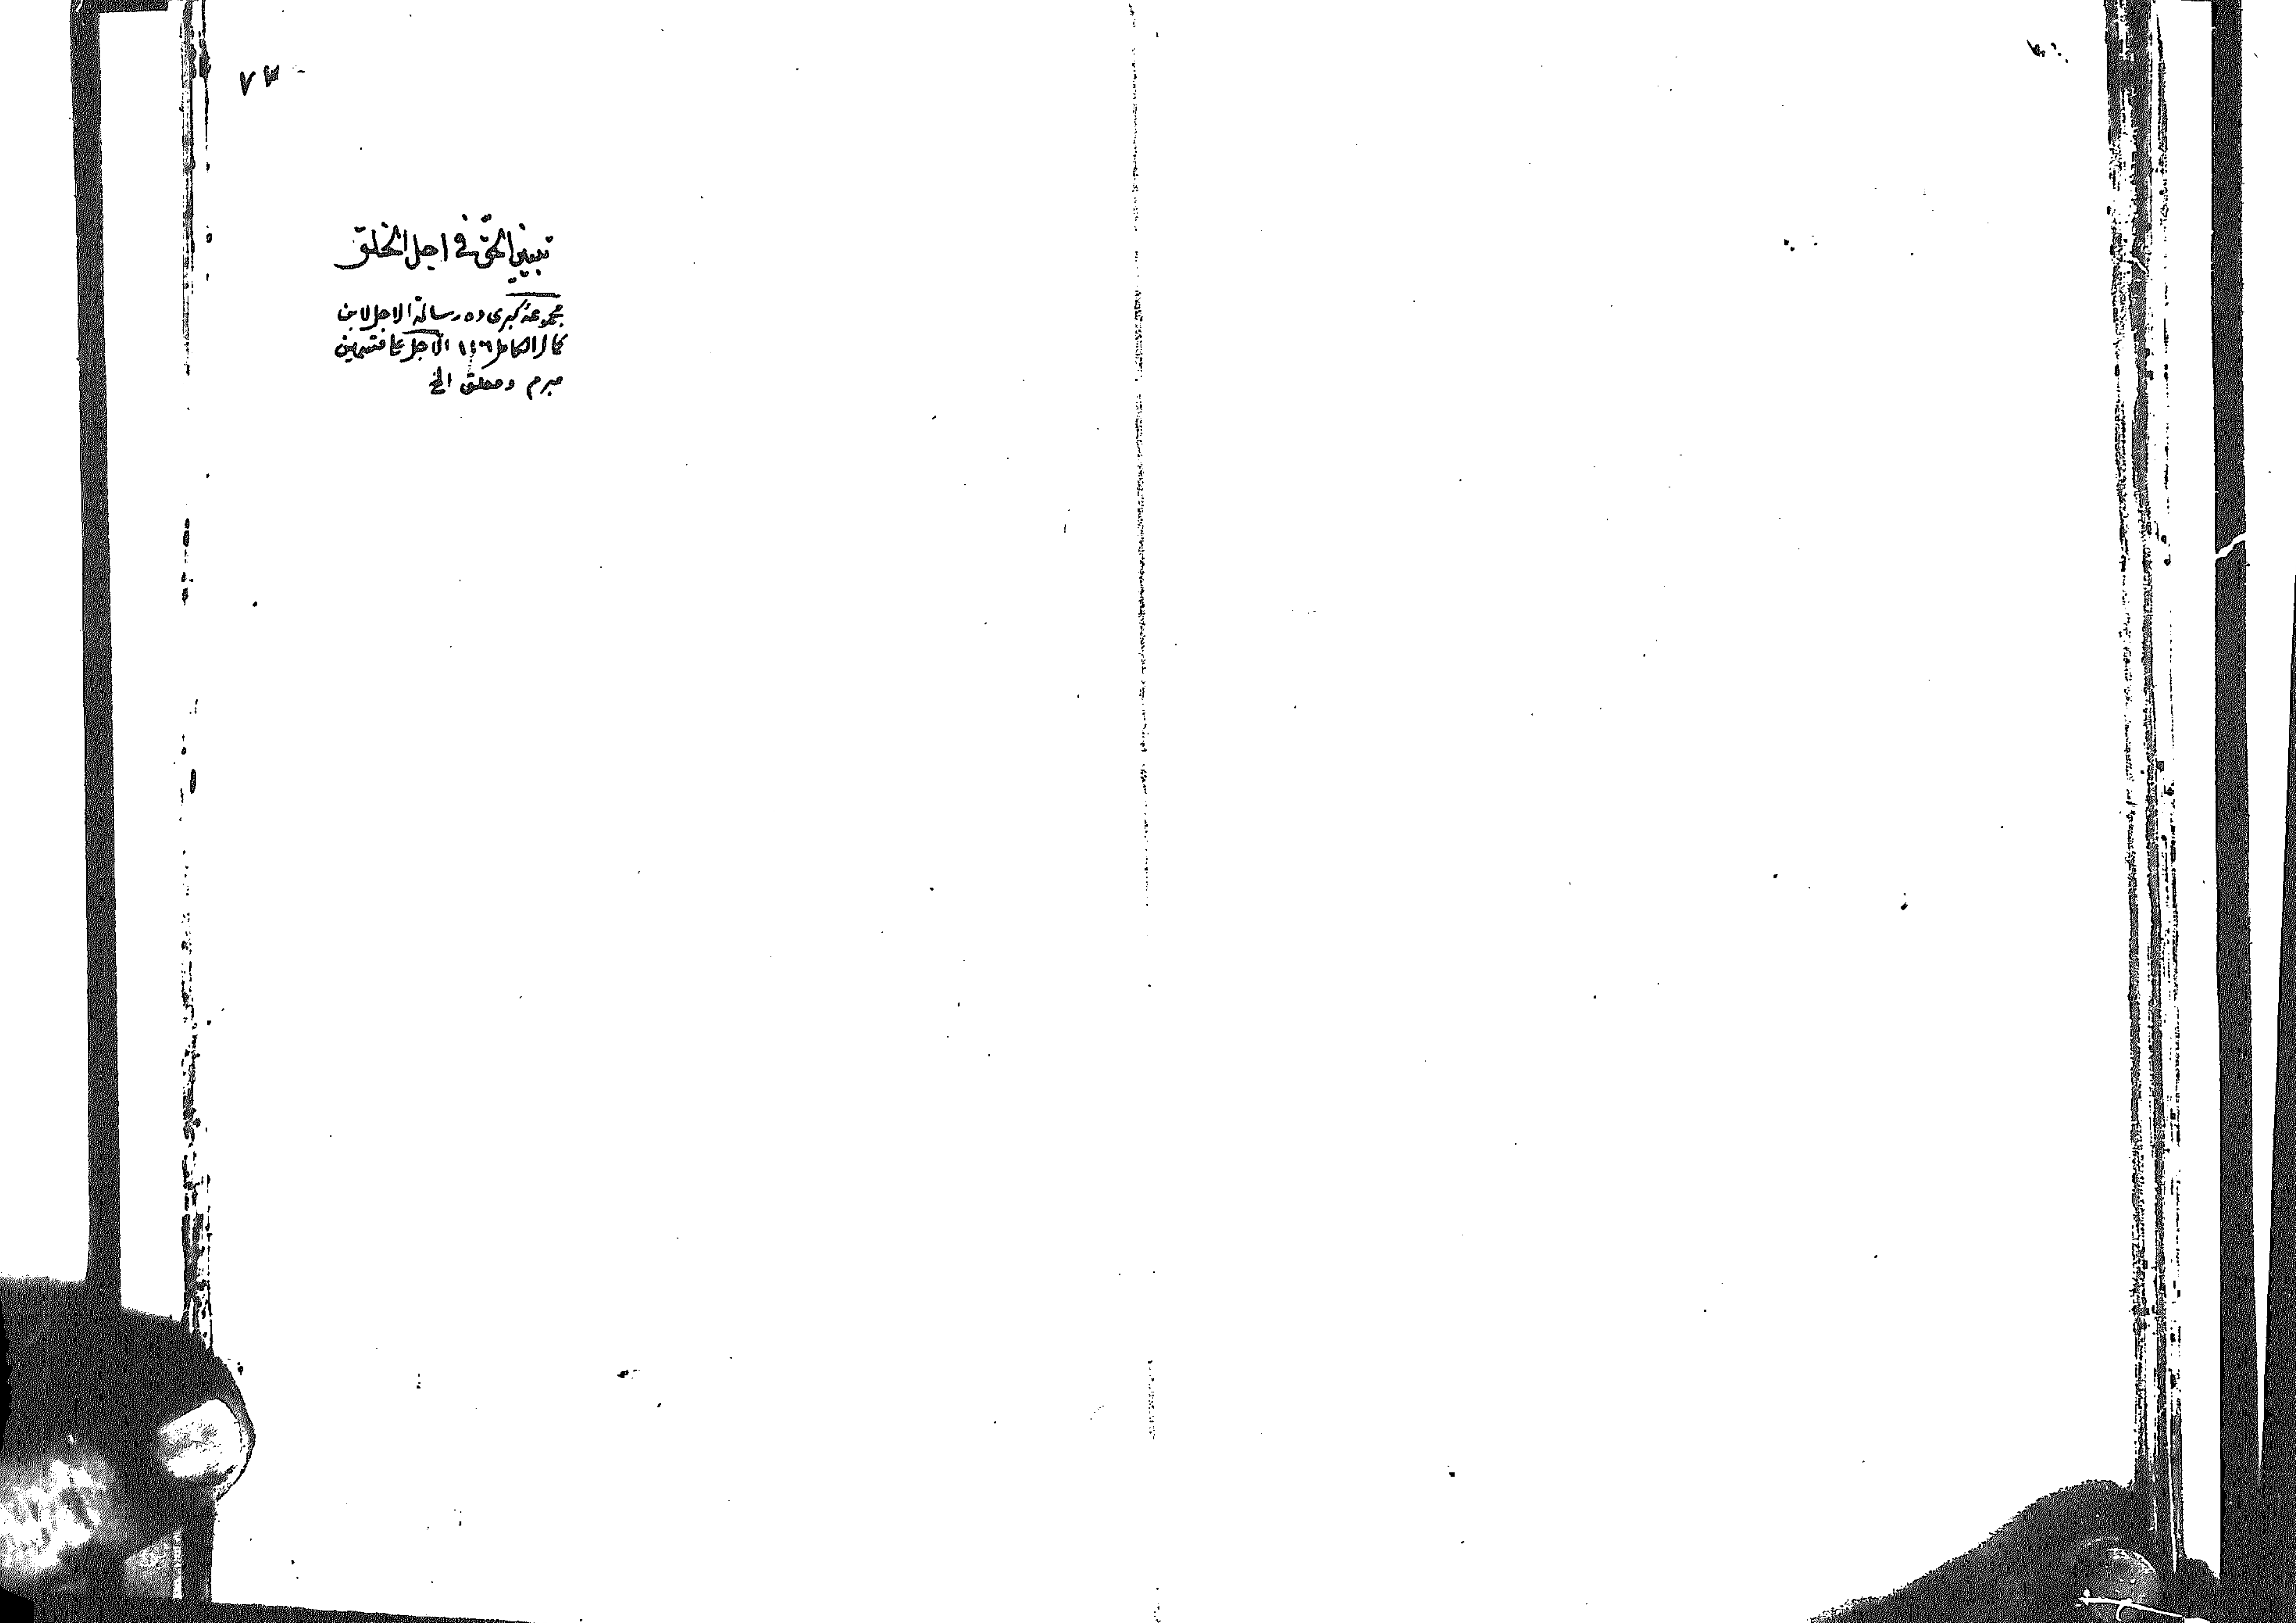 ٧٣
تبيين الحق في اجل الخلق
مجموعۀ كبرى ده رسالة الاجل لابن
كمال الاجل على قسمين
مبرم ومعلق الخ